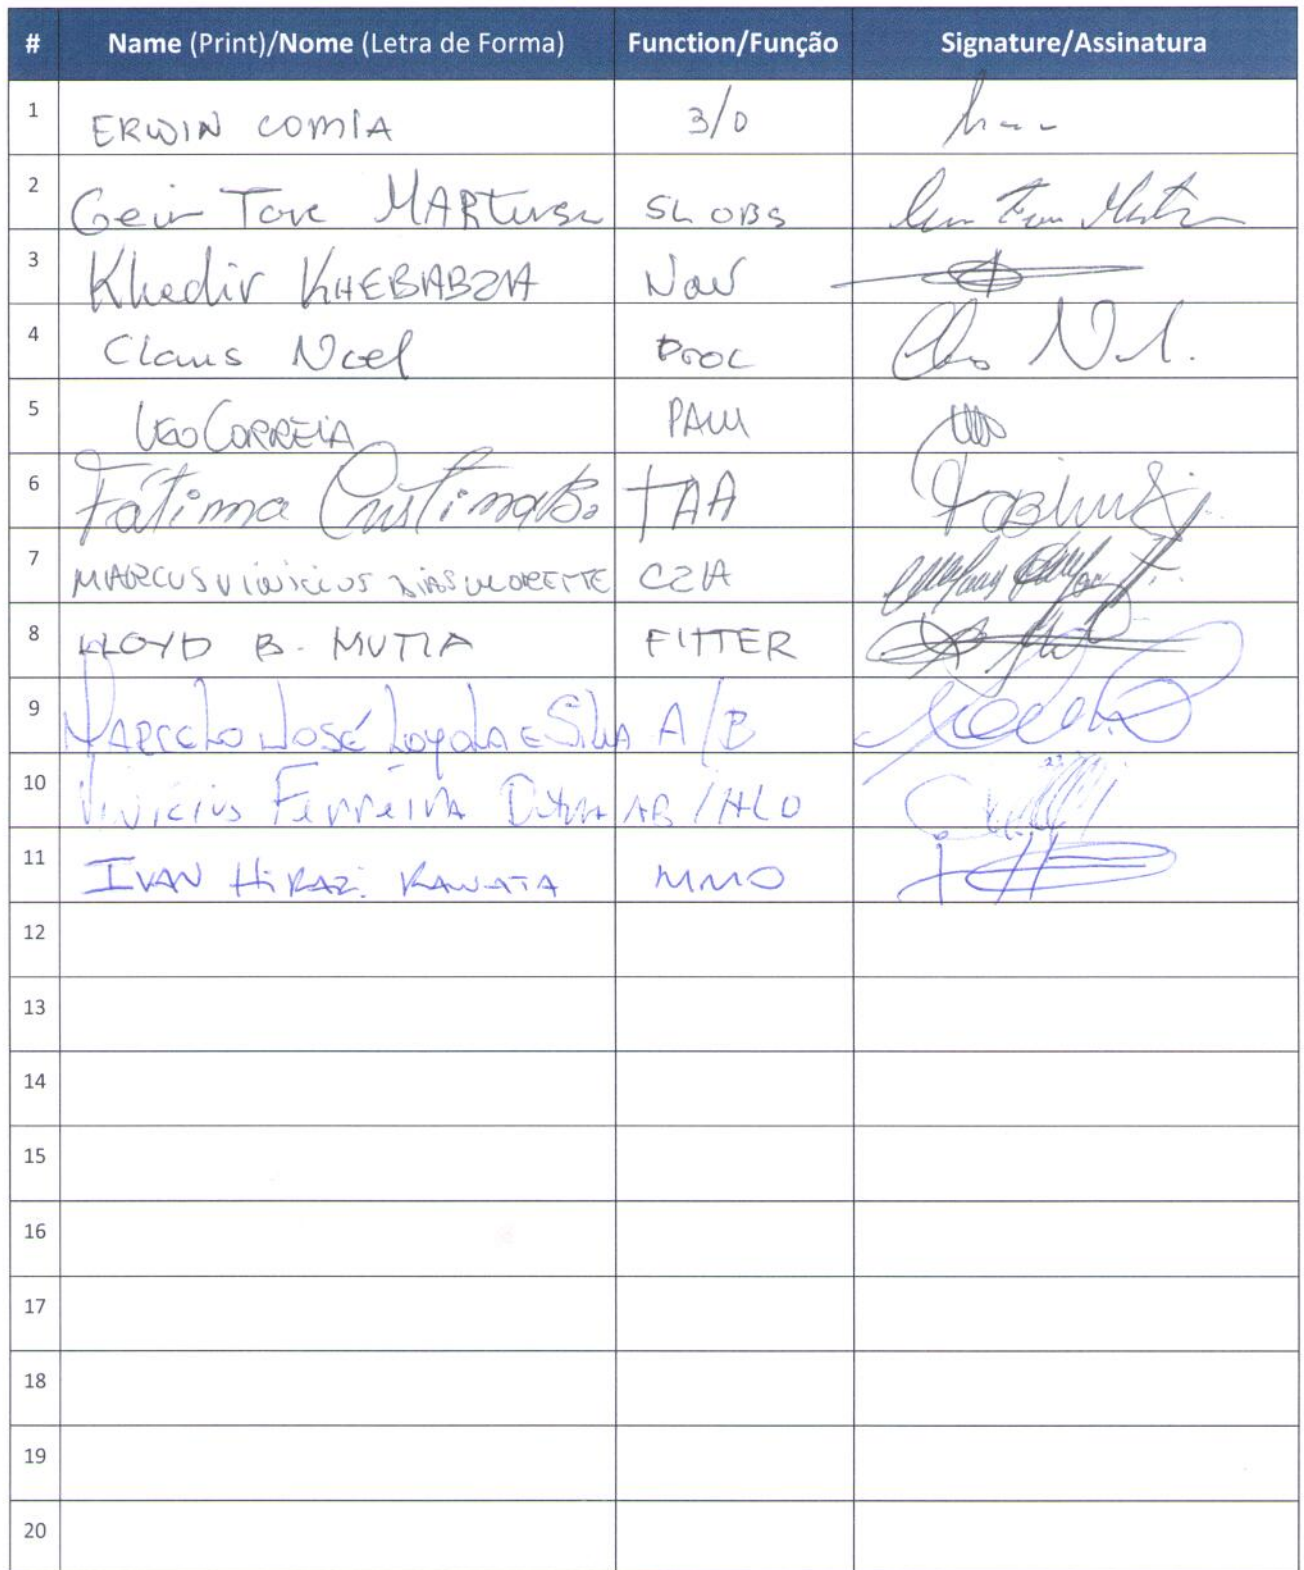 # Name (Print)/Nome (Letra de Forma) Function/Função Signature/Assinatura
1 ERWIN COMIA 3/0
2 Geir Tore MARTINSEN SL OBS
3 Khedir KHEBABZIA Nav
4 Claus Noel PROC
5 LEO CORREIA PAM
6 Fátima Cristina B. TAA
7 MARCUS VINICIUS DIAS CZIA
8 LLOYD B. MUTIA FITTER
9 MARCELO JOSÉ LOYOLA E SILVA A/B
10 Vinicius Ferreira AB/HLO
11 IVAN HIRAZI KAWATA MMO
12
13
14
15
16
17
18
19
20